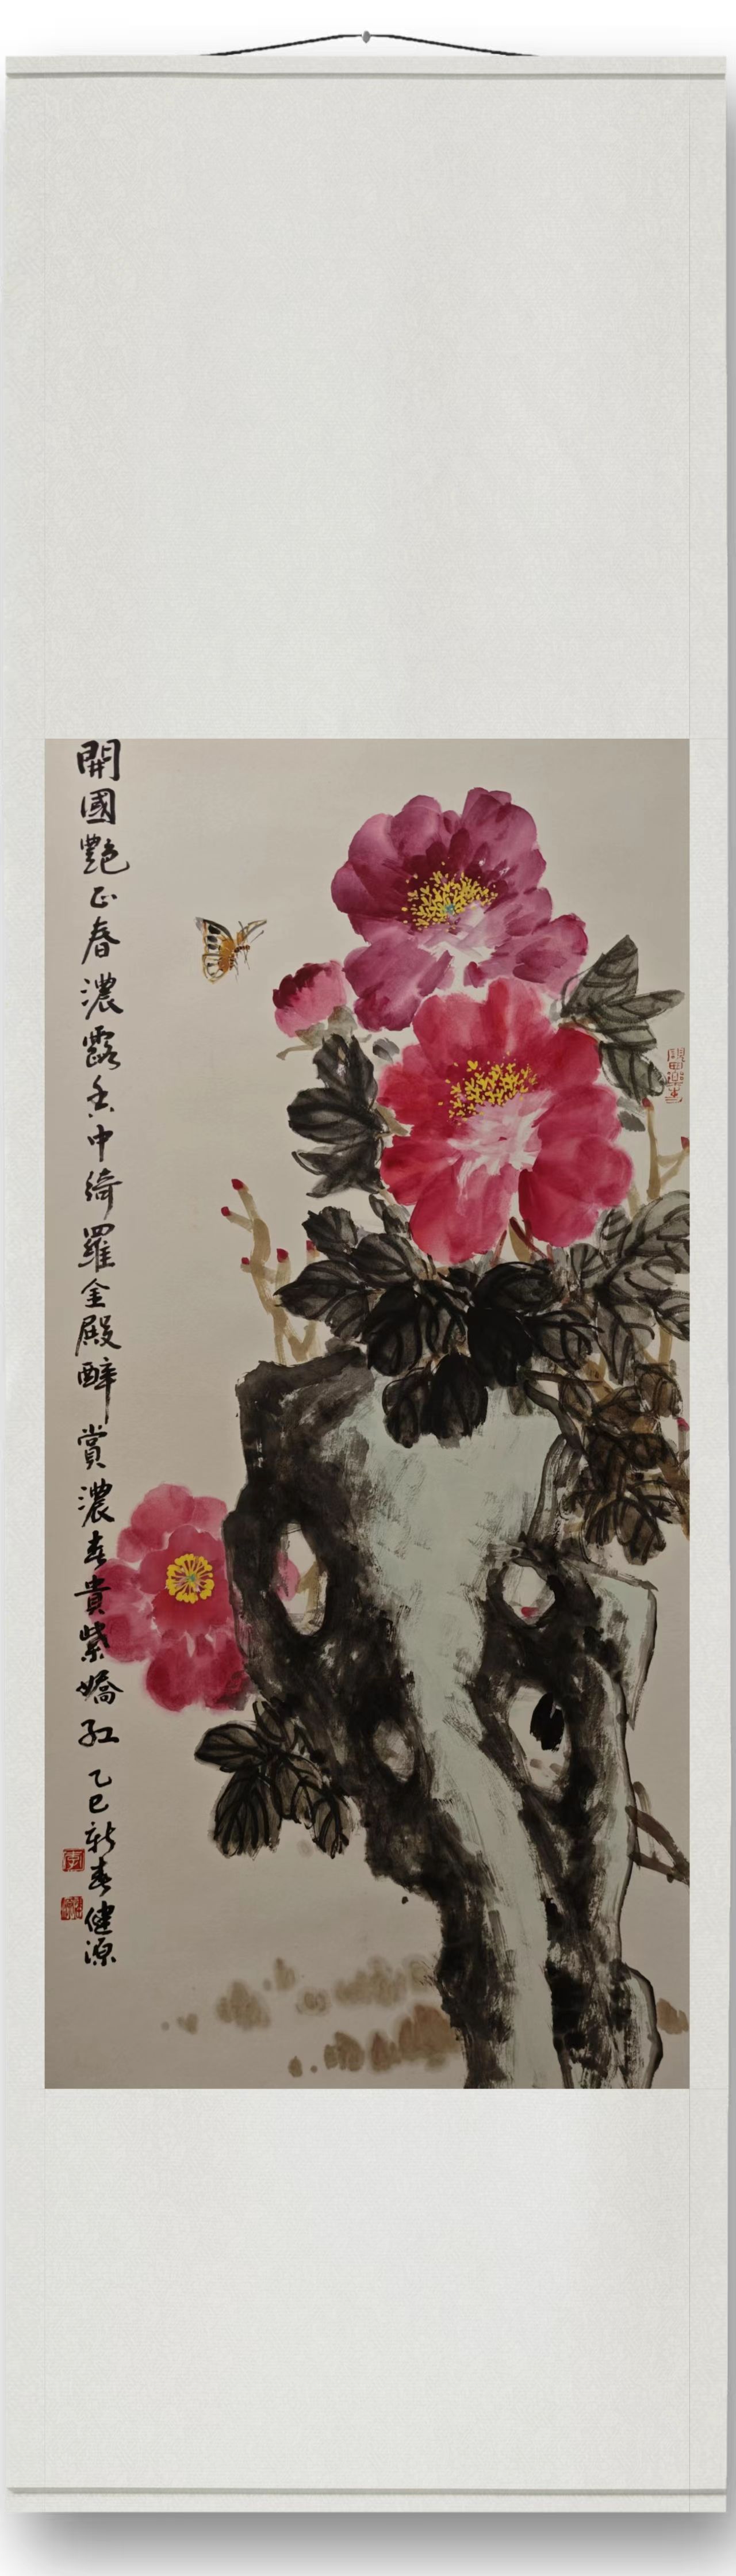 開國艷正春濃露香中綺羅金殿醉賞濃春貴紫嬌紅 乙巳新春健源